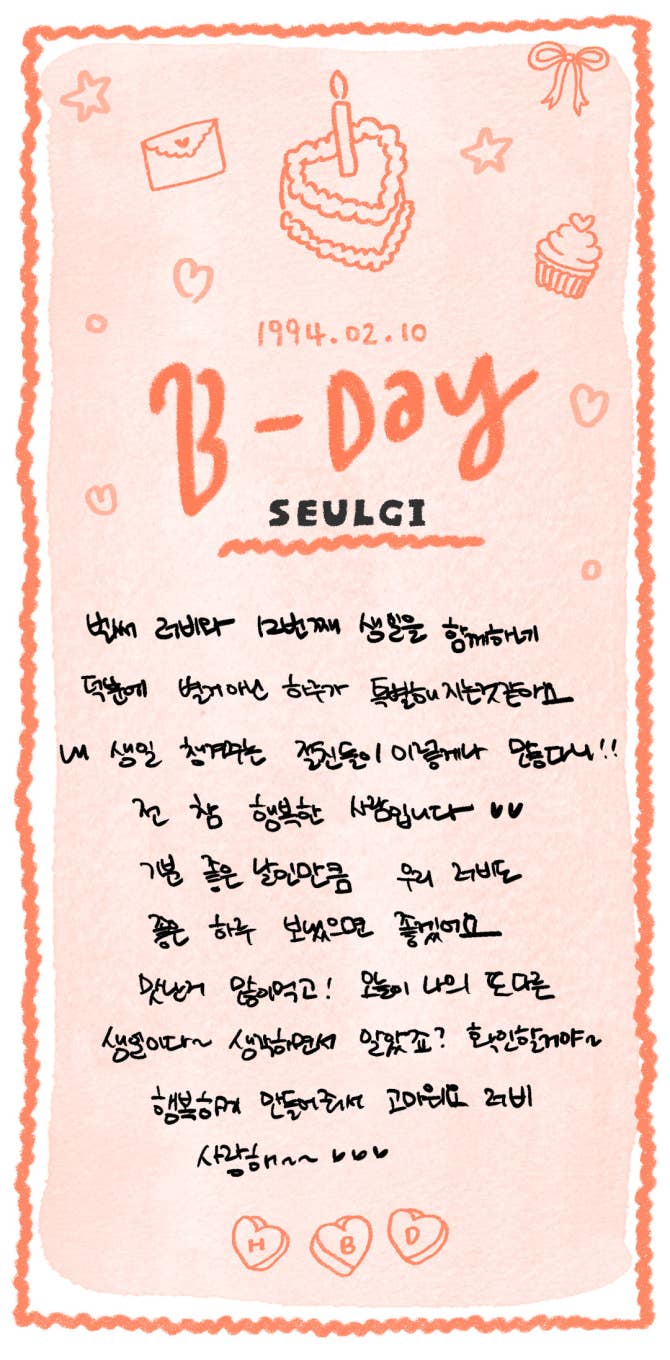 1994.02.10
B-Day
SEULGI
벌써 러비와 12번째 생일을 함께하네
덕분에 별거 아닌 하루가 특별해지는것같아요
내 생일 챙겨주는 절친들이 이렇게나 많다니!!
전 참 행복한 사람입니다 ♥♥
기분 좋은 날인만큼 우리 러비도
좋은 하루 보냈으면 좋겠어요
맛난거 많이먹고! 오늘이 나의 또다른
생일이다~ 생각하면서 알았죠? 확인할거야~
행복하게 만들어줘서 고마워요 러비
사랑해~~ ♥♥♥
H B D